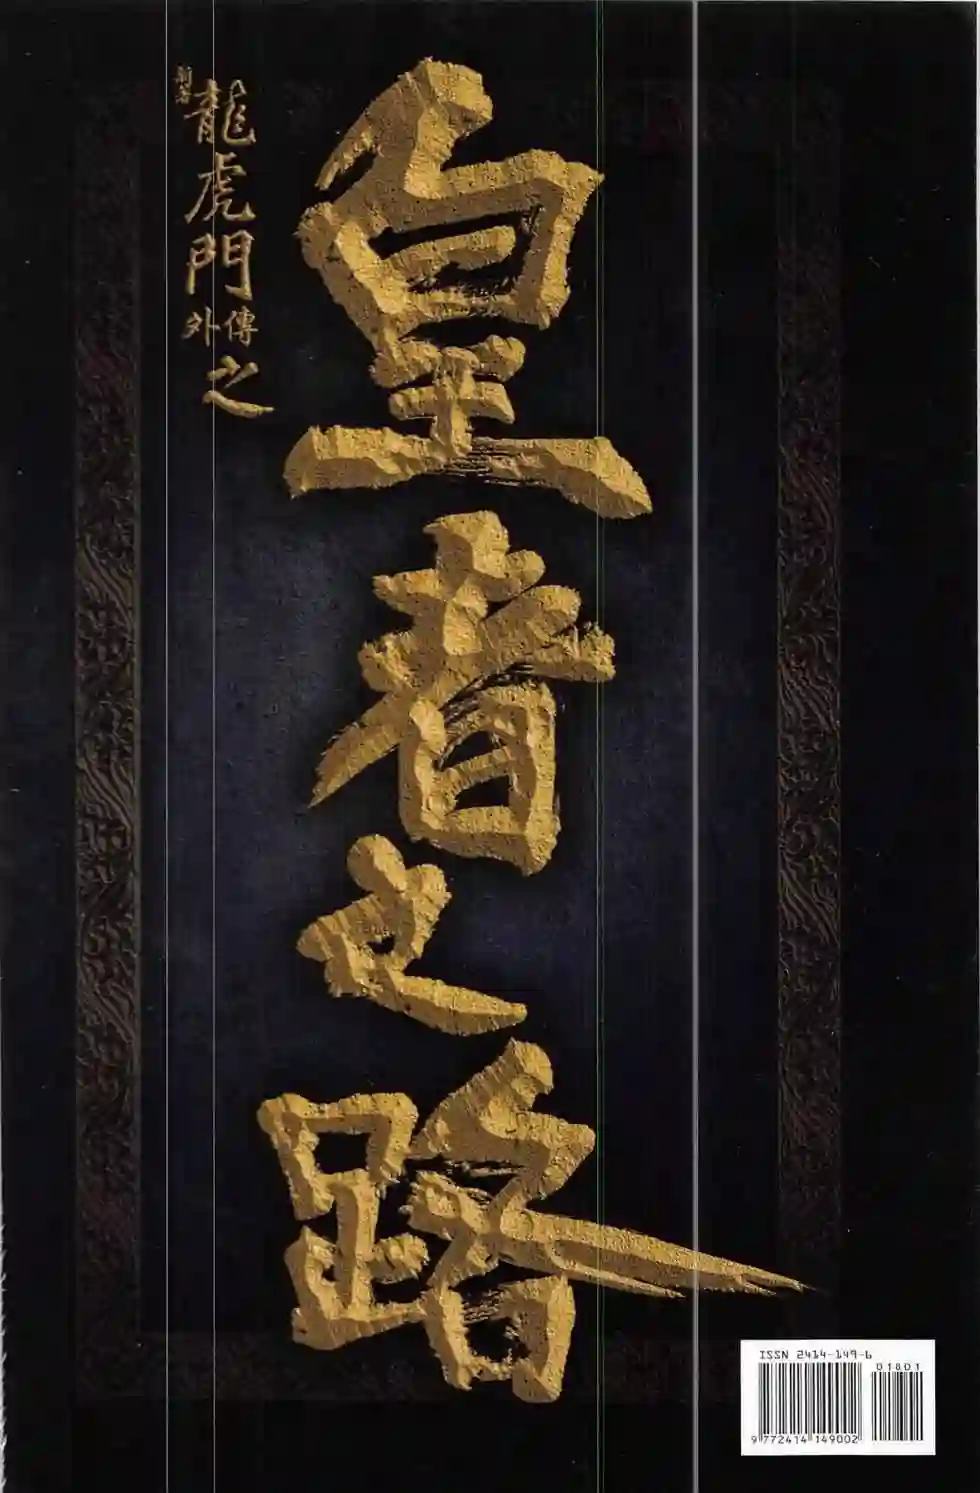 新著龍虎門外傳之
皇者之路
ISSN 2414-149-6
01801
9 772414 149002